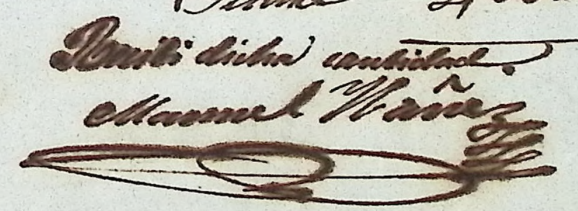 Recibi dicha cantidad.
Manuel Yañez